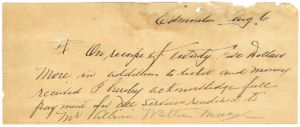 Edmonton Aug 6
On receipt of twenty five Dollars
More in addition to ticket and money
received I hereby acknowledge full
payment for the services rendered to
Mr William Wallie